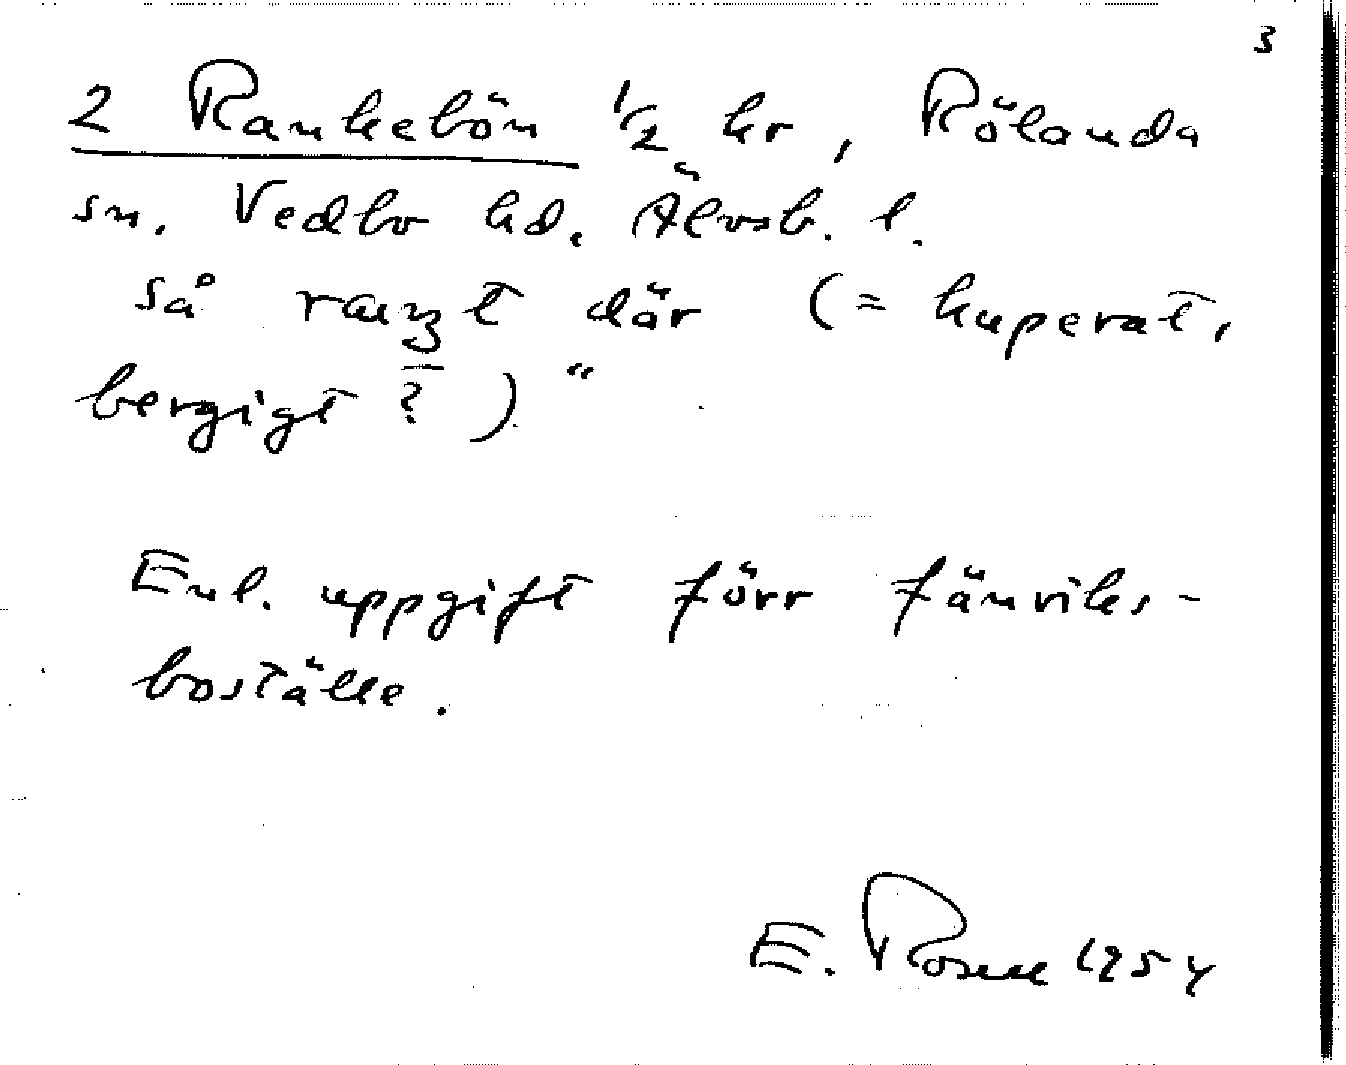 3
2 Rankebön 1/2 hr, Rölanda
sn. Vedbo hd. Älvsb. l.
så där (= kuperat,
bergigt ?) "
Enl. uppgift förr fänriks-
boställe.
E. 1954